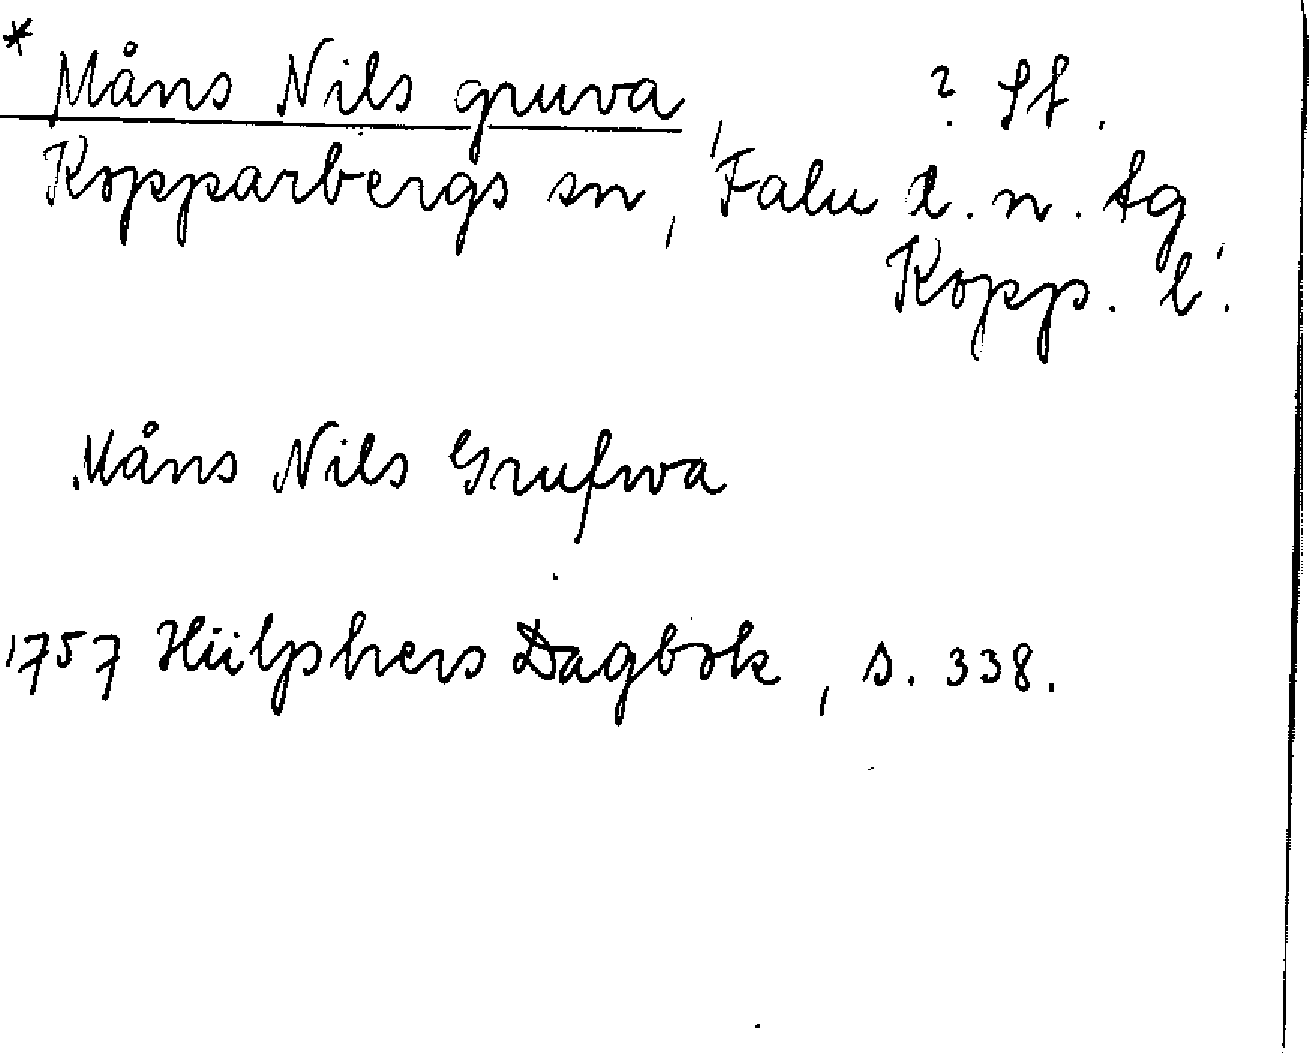 * Måns Nils gruva, ? Sf.
Kopparbergs sn, Falu d. n. tg,
Kopp. l.
Måns Nils Grufwa
1757 Hülphers Dagbok, s. 338.